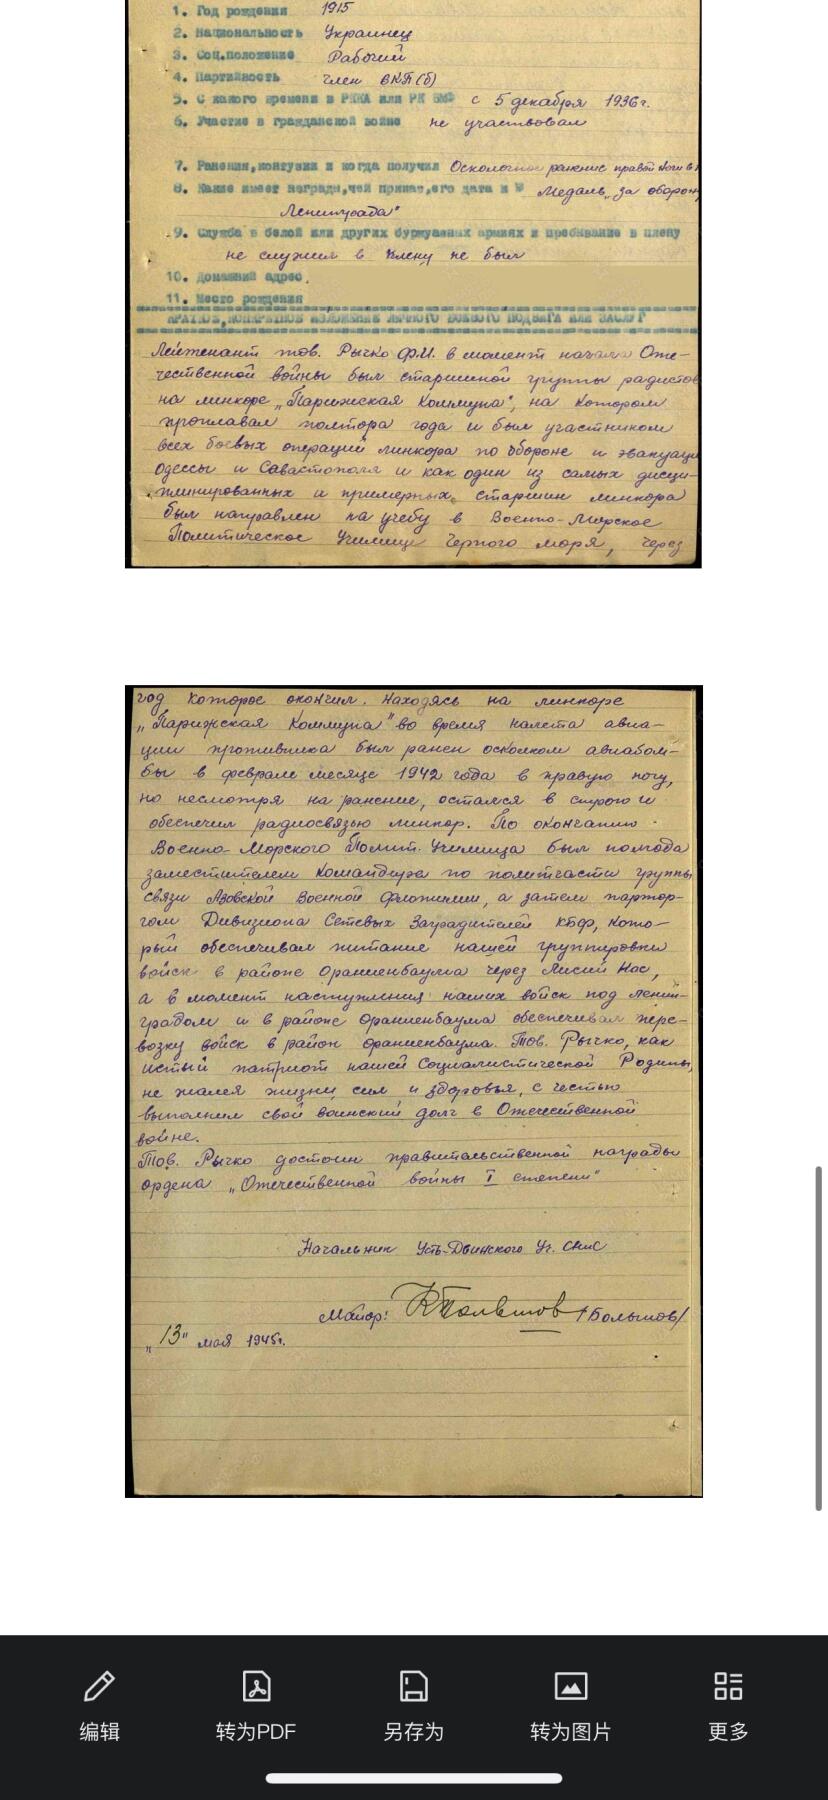 1. Год рождения 1915
2. Национальность Украинец
3. Соц.положение Рабочий
4. Партийность член ВКП(б)
5. С какого времени в РККА или РК ВМФ с 5 декабря 1936г.
6. Участие в гражданской войне не участвовал
7. Ранения,контузии и когда получил Осколочное ранение правой ноги в
8. Какие имеет награды,чей приказ,его дата и № Медаль „за оборону
Ленинграда"
9. Служба в белой или других буржуазных армиях и пребывание в плену
не служил в плену не был
10. Домашний адрес.
11. Место рождения
КРАТКОЕ,КОНКРЕТНОЕ ИЗЛОЖЕНИЕ ЛИЧНОГО БОЕВОГО ПОДВИГА ИЛИ ЗАСЛУГ
Лейтенант тов. Рычко Ф.И. в момент начала Оте-
чественной войны был старшиной группы радистов
на линкоре „Парижская Коммуна", на котором
проплавал полтора года и был участником
всех боевых операций линкора по обороне и эвакуации
Одессы и Савастополя и как один из самых дисци-
плинированных и примерных старшин линкора
был направлен на учебу в Военно-Морское
Политическое Училище Черного моря, через
год которое окончил. Находясь на линкоре
„Парижская Коммуна" во время налета авиа-
ции противника был ранен осколком авиабом-
бы в феврале месяце 1942 года в правую ногу,
но несмотря на ранение, остался в строю и
обеспечил радиосвязью линкор. По окончании
Военно-Морского Полит. Училища был
заместителем командира по политчасти группы
связи Азовской Военной Флотилии, а затем партор-
гом Дивизиона Сетевых Заградителей КБФ, кото-
рый обеспечивал питание нашей группировки
войск в районе Ораниенбаума через Лисий Нос,
а в момент наступления наших войск под Ленин-
градом и в районе Ораниенбаума обеспечивал пере-
возку войск в район Ораниенбаума. Тов. Рычко, как
истый патриот нашей Социалистической Родины,
не жалея жизни, сил и здоровья, с честью
выполнил свой воинский долг в Отечественной
войне.
Тов. Рычко достоин правительственной награды
ордена „Отечественной войны I степени"
Начальник Усть-Двинского Уч. СНиС
Майор: /Большов/
„13" мая 1945г.
编辑
转为PDF
另存为
转为图片
更多